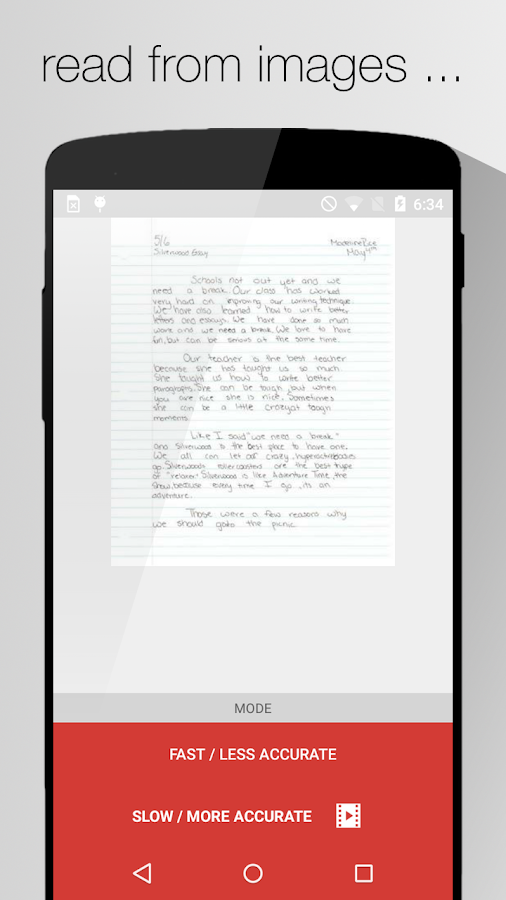 read from images ...
6:34
5/6
Silverwood Essay
Madeline Rice
May 4th
Schools not out yet and we
need a break. Our class has worked
very hard on improving our writing technique.
We have also learned how to write better
letters and essays. We have done so much
work and we need a break. We love to have
fun, but can be smart at the same time.
Our teacher is the best teacher
because she has taught us so much.
She taught us how to write better
paragraphs. She can be tough, but when
you are nice she is nice. Sometimes
she can be a little crazy at
moments.
Like I said "we need a break"
and Silverwood is the best place to have one.
We all can let our crazy, hyperactive
go. Silverwoods rollercoasters are the best type
of Silverwood is like Adventure Time, the
show, because every time I go, its an
adventure.
Those were a few reasons why
we should goto the picnic.
MODE
FAST / LESS ACCURATE
SLOW / MORE ACCURATE